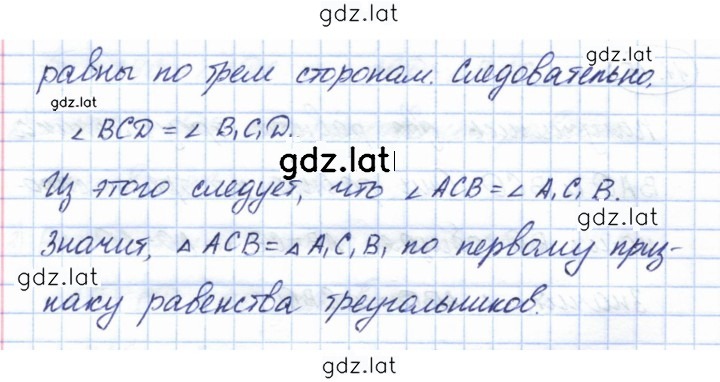 gdz.lat
равны по трем сторонам. Следовательно,
gdz.lat
gdz.lat
∠ BCD = ∠ B₁C₁D.
gdz.lat
Из этого следует, что ∠ ACB = ∠ A₁C₁B.
gdz.lat
Значит, △ ACB = △ A₁C₁B₁ по первому приз-
gdz.lat
наку равенства треугольников.
gdz.lat
gdz.lat